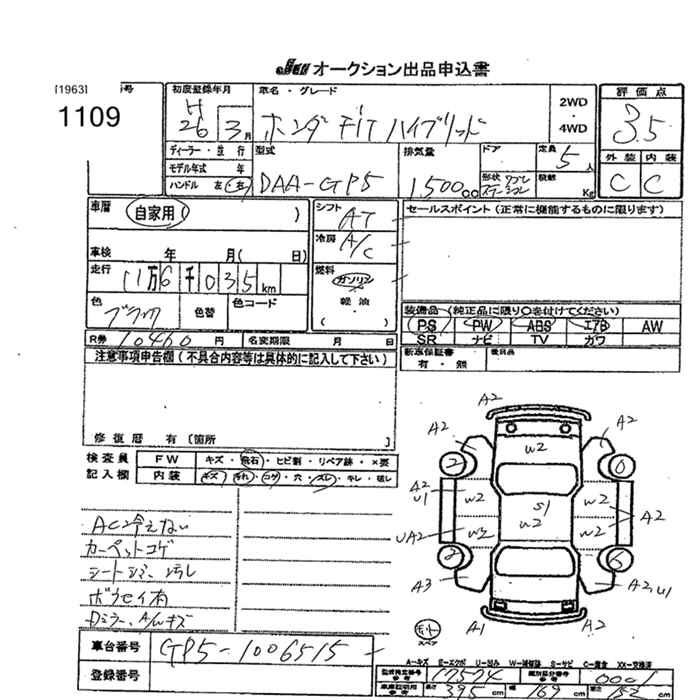 JU オークション出品申込書
[1963] 号
1109
初度登録年月
H26 3月
車名・グレード
ホンダ FIT ハイブリッド
2WD
・
4WD
評価点
3.5
外装 内装
C C
ディーラー・並行
モデル年式 年
ハンドル 左 右
型式
DAA-GP5
排気量
1,500cc
ドア
形状
定員
5人
積載
Kg
車暦
自家用 ( )
車検 年 月( 日)
走行
11万6千035km
色
色替
色コード
シフト
AT
冷房
A/C
燃料
ガソリン
軽油
( )
セールスポイント (正常に機能するものに限ります)
装備品 (純正品に限り○を付けてください)
PS PW ABS エアB AW
SR ナビ TV カワ
新車保証書
有・無
後日品
R券 10460円 名変期限 月 日
注意事項申告欄(不具合内容等は具体的に記入して下さい)
修復暦 有 [箇所 ]
検査員
記入欄
FW キズ・飛石・ヒビ割・リペア跡・×要
内装 キズ・汚れ・コゲ・穴・スレ・キレ・破レ
AC冷えない
カーペットコゲ
シートシミ、汚レ
Dミラー、A/Wキズ
車台番号 GP5-1006515
登録番号
A2
A2
A2
W2
2
0
A2
U1
W2
S1
W2
W2
A2
UA2
W2
W2
2
6
A3
A2,U1
A1
A2
スペア
A-キズ E-エクボ U-凹み W-補修跡 S-サビ C-腐食 XX-交換済
型式指定番号 17524
類別区分番号 0001
長さ 395cm
幅 169cm
高さ 152cm